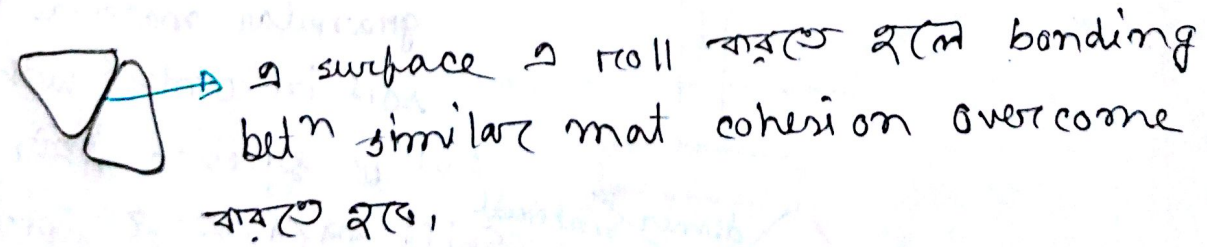 এ surface এ roll করতে হলে bonding
betⁿ similar mat cohesion overcome
করতে হবে।